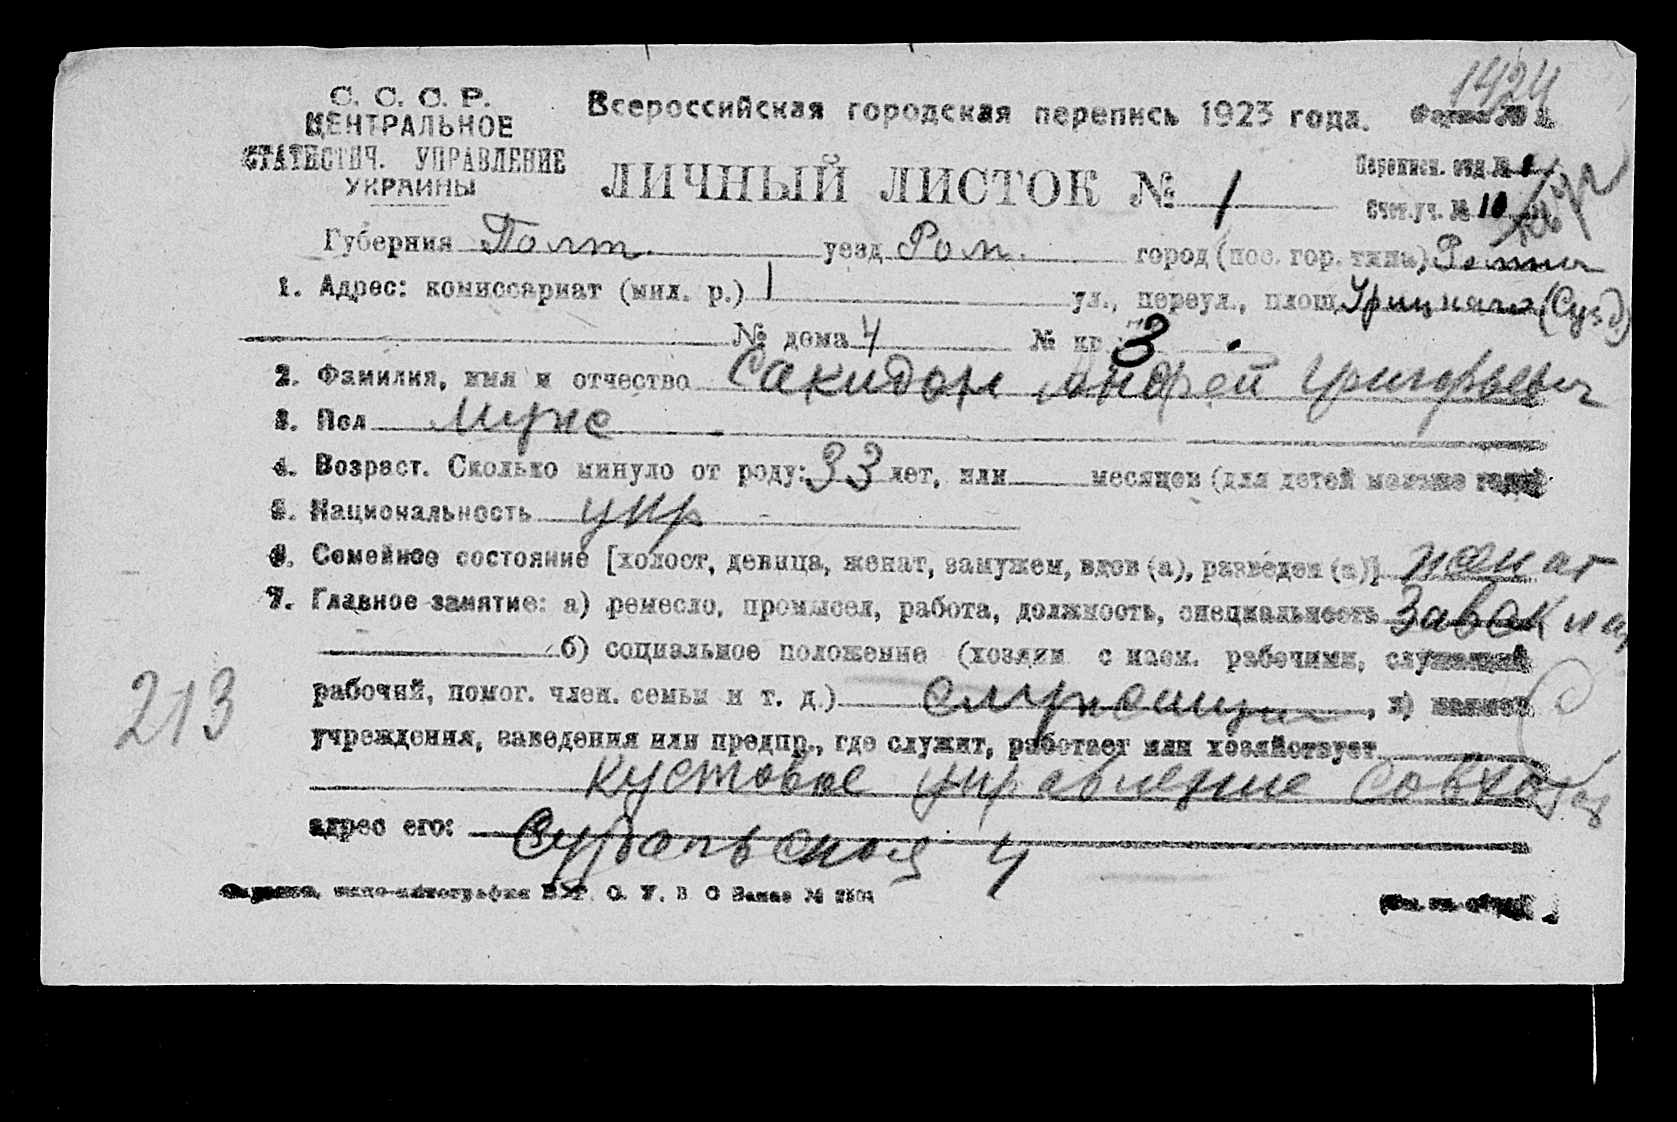 1424
С. С. С. Р.
ЦЕНТРАЛЬНОЕ
СТАТИСТИЧ. УПРАВЛЕНИЕ
УКРАИНЫ
Всероссийская городская перепись 1923 года. Форма № 1.
ЛИЧНЫЙ ЛИСТОК № 1
Переписн. отд. №
Счет. уч. № 10
Губерния Полт. уезд Ром. город (пос. гор. типа) Ромны
1. Адрес: комиссариат (мил. р.) 1 ул., переул., площ. Урицкаго (Сузд)
№ дома 4 № кв 3
2. Фамилия, имя и отчество Сакидон Андрей Григорьевич
3. Пол Муже
4. Возраст. Сколько минуло от роду: 33 лет, или месяцев (для детей меньше года)
5. Национальность укр
6. Семейное состояние [холост, девица, женат, замужем, вдов (а), разведен (а)] женат
7. Главное занятие: а) ремесло, промысел, работа, должность, специальность Завок
б) социальное положение (хозяин с наем. рабочими, служащий
рабочий, помог. член. семьи и т. д.) служащий, в)
213
учреждения, заведения или предпр., где служит, работает или хозяйствует
кустовое управление совхоза
адрес его: Суздальская 4
типо-литография В. У. С. У. В С Заказ №